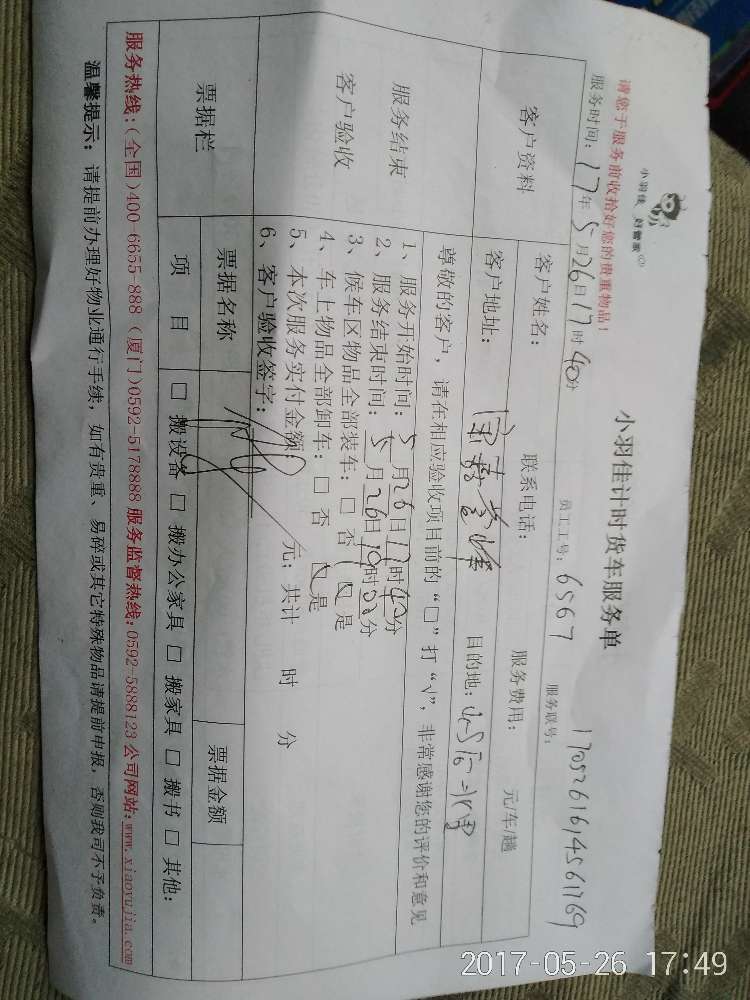 小羽佳 好管家
小羽佳计时货车服务单
请您于服务前收拾好您的贵重物品！
服务时间：17年5月26日17时40分 员工工号：6567 服务联号：17052616145611769
客户资料
客户姓名： 联系电话： 服务费用： 元/车/趟
客户地址： 目的地：
服务结束
客户验收
尊敬的客户，请在相应验收项目前的“□”打“√”，非常感谢您的评价和意见
1、服务开始时间：5月26日17时40分
2、服务结束时间：5月26日19时00分
3、候车区物品全部装车：□否 □是
4、车上物品全部卸车：□否 □是
5、本次服务实付金额： 元；共计 时 分
6、客户验收签字：
票据栏
票据名称 票据金额
项 目 □ 搬设备 □ 搬办公家具 □ 搬家具 □ 搬书 □ 其他：
服务热线：（全国）400-6655-888（厦门）0592-5178888 服务监督热线：0592-5888123 公司网站：www.xiaoyujia.com
温馨提示：请提前办理好物业通行手续，如有贵重、易碎或其它特殊物品请提前申报，否则我司不予负责。
2017-05-26 17:49